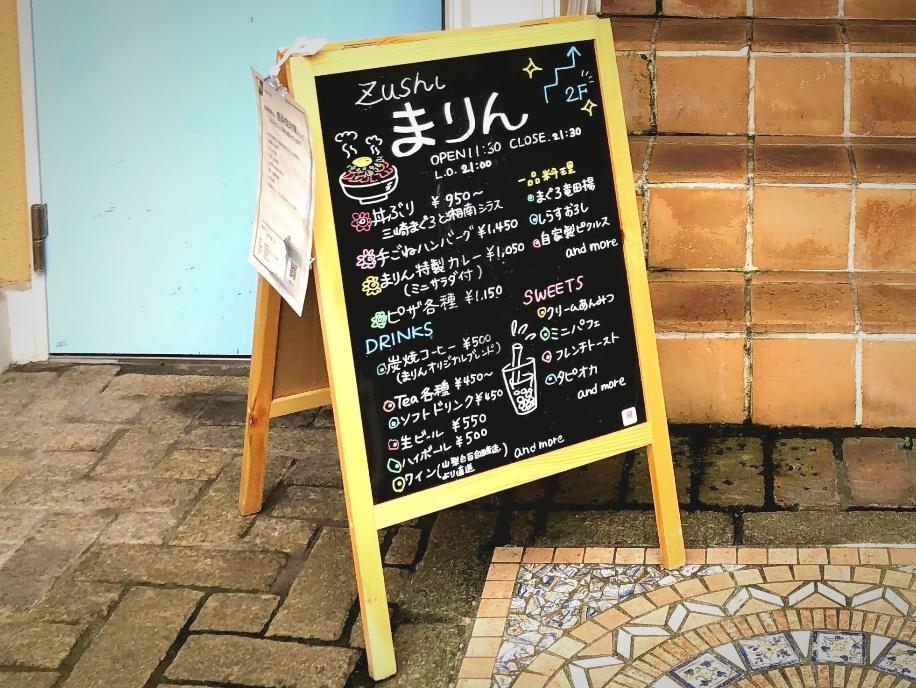 Zushi
まりん
2F
OPEN 11:30 CLOSE. 21:30
L.O. 21:00
丼ぶり ¥950〜
三崎まぐろと湘南シラス
手ごねハンバーグ ¥1,450
まりん特製カレー ¥1,050
(ミニサラダ付)
ピザ各種 ¥1,150
DRINKS
炭焼コーヒー ¥500
(まりんオリジナルブレンド)
Tea各種 ¥450〜
ソフトドリンク ¥450
生ビール ¥550
ハイボール ¥500
ワイン(山梨白百合醸造より直送)
and more
一品料理
まぐろ竜田揚
しらすおろし
自家製ピクルス
and more
SWEETS
クリームあんみつ
ミニパフェ
フレンチトースト
タピオカ
and more